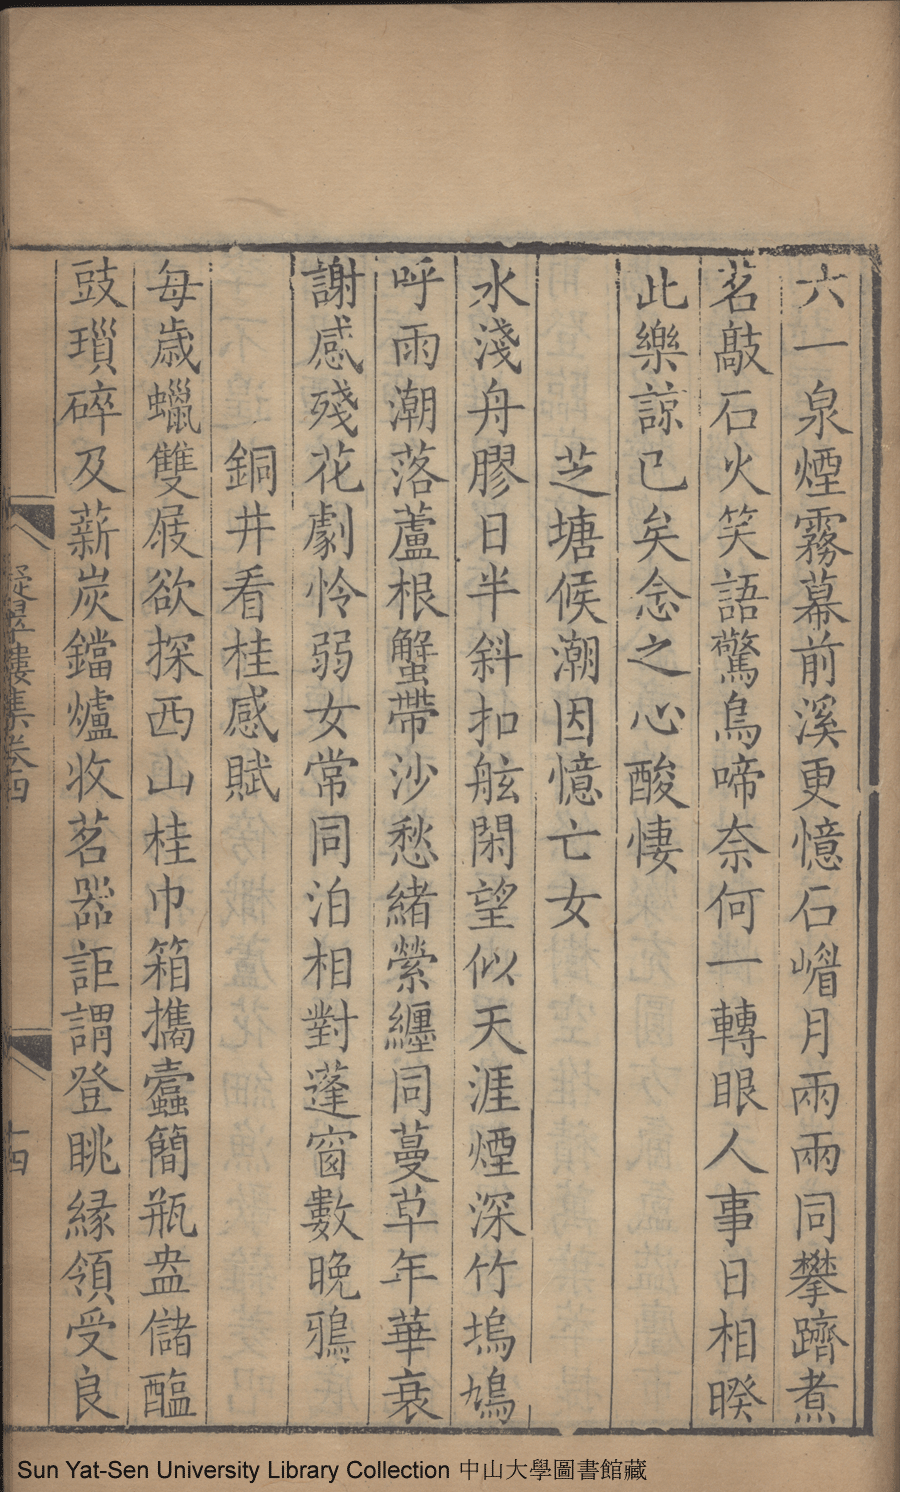 六一泉煙霧幕前溪更憶石嵋月兩兩同攀躋煮
茗敲石火笑語驚鳥啼奈何一轉眼人事日相暌
此樂諒已矣念之心酸悽
芝塘候潮因憶亡女
水淺舟膠日半斜扣舷閑望似天涯煙深竹塢鳩
呼雨潮落蘆根蟹帶沙愁緒縈纏同蔓草年華衰
謝感殘花劇怜弱女常同泊相對蓬窗數晚鴉
銅井看桂感賦
毎歳蠟雙屐欲探西山桂巾箱攜蠹簡瓶盎儲醢
豉瑣碎及薪炭鐺爐收茗器詎謂登眺緣領受良
凝翠樓集卷四
十四
Sun Yat-Sen University Library Collection 中山大學圖書館藏